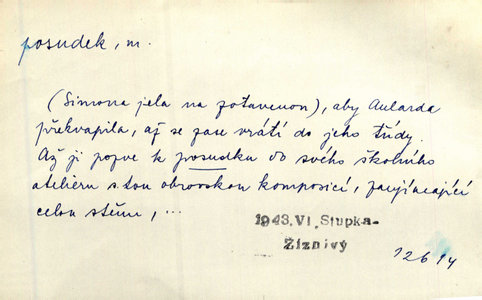 posudek, m.
(Simona jela na zotavenou), aby Aularda
překvapila, až se zase vrátí do jeho třídy.
Až ji pozve k posudku do svého školního
atelieru s tou obrovskou komposicí, zaujímající
celou stěnu, ...
1943.VI. Stupka-
Žíznivý
12614